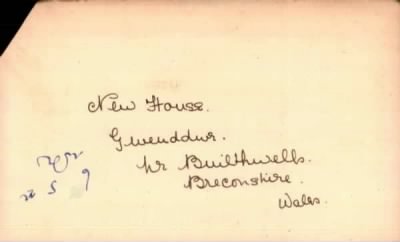 New House.
Gwenddwr.
Nr Builthwells.
Breconshire.
Wales.